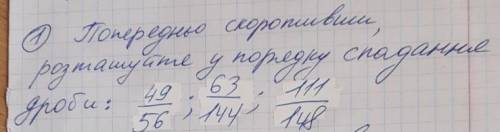 ① Попередньо скоротивши,
розташуйте у порядку спадання
дроби: 49/56 ; 63/144 ; 111/148